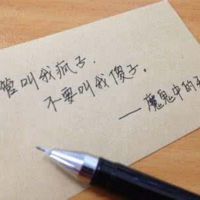 管叫我疯子,
不要叫我傻子.
——魔鬼中的